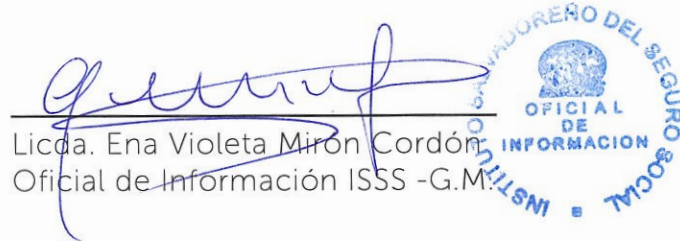 Licda. Ena Violeta Mirón Cordón
Oficial de Información ISSS -G.M.
INSTITUTO SALVADOREÑO DEL SEGURO SOCIAL
OFICIAL
DE
INFORMACION